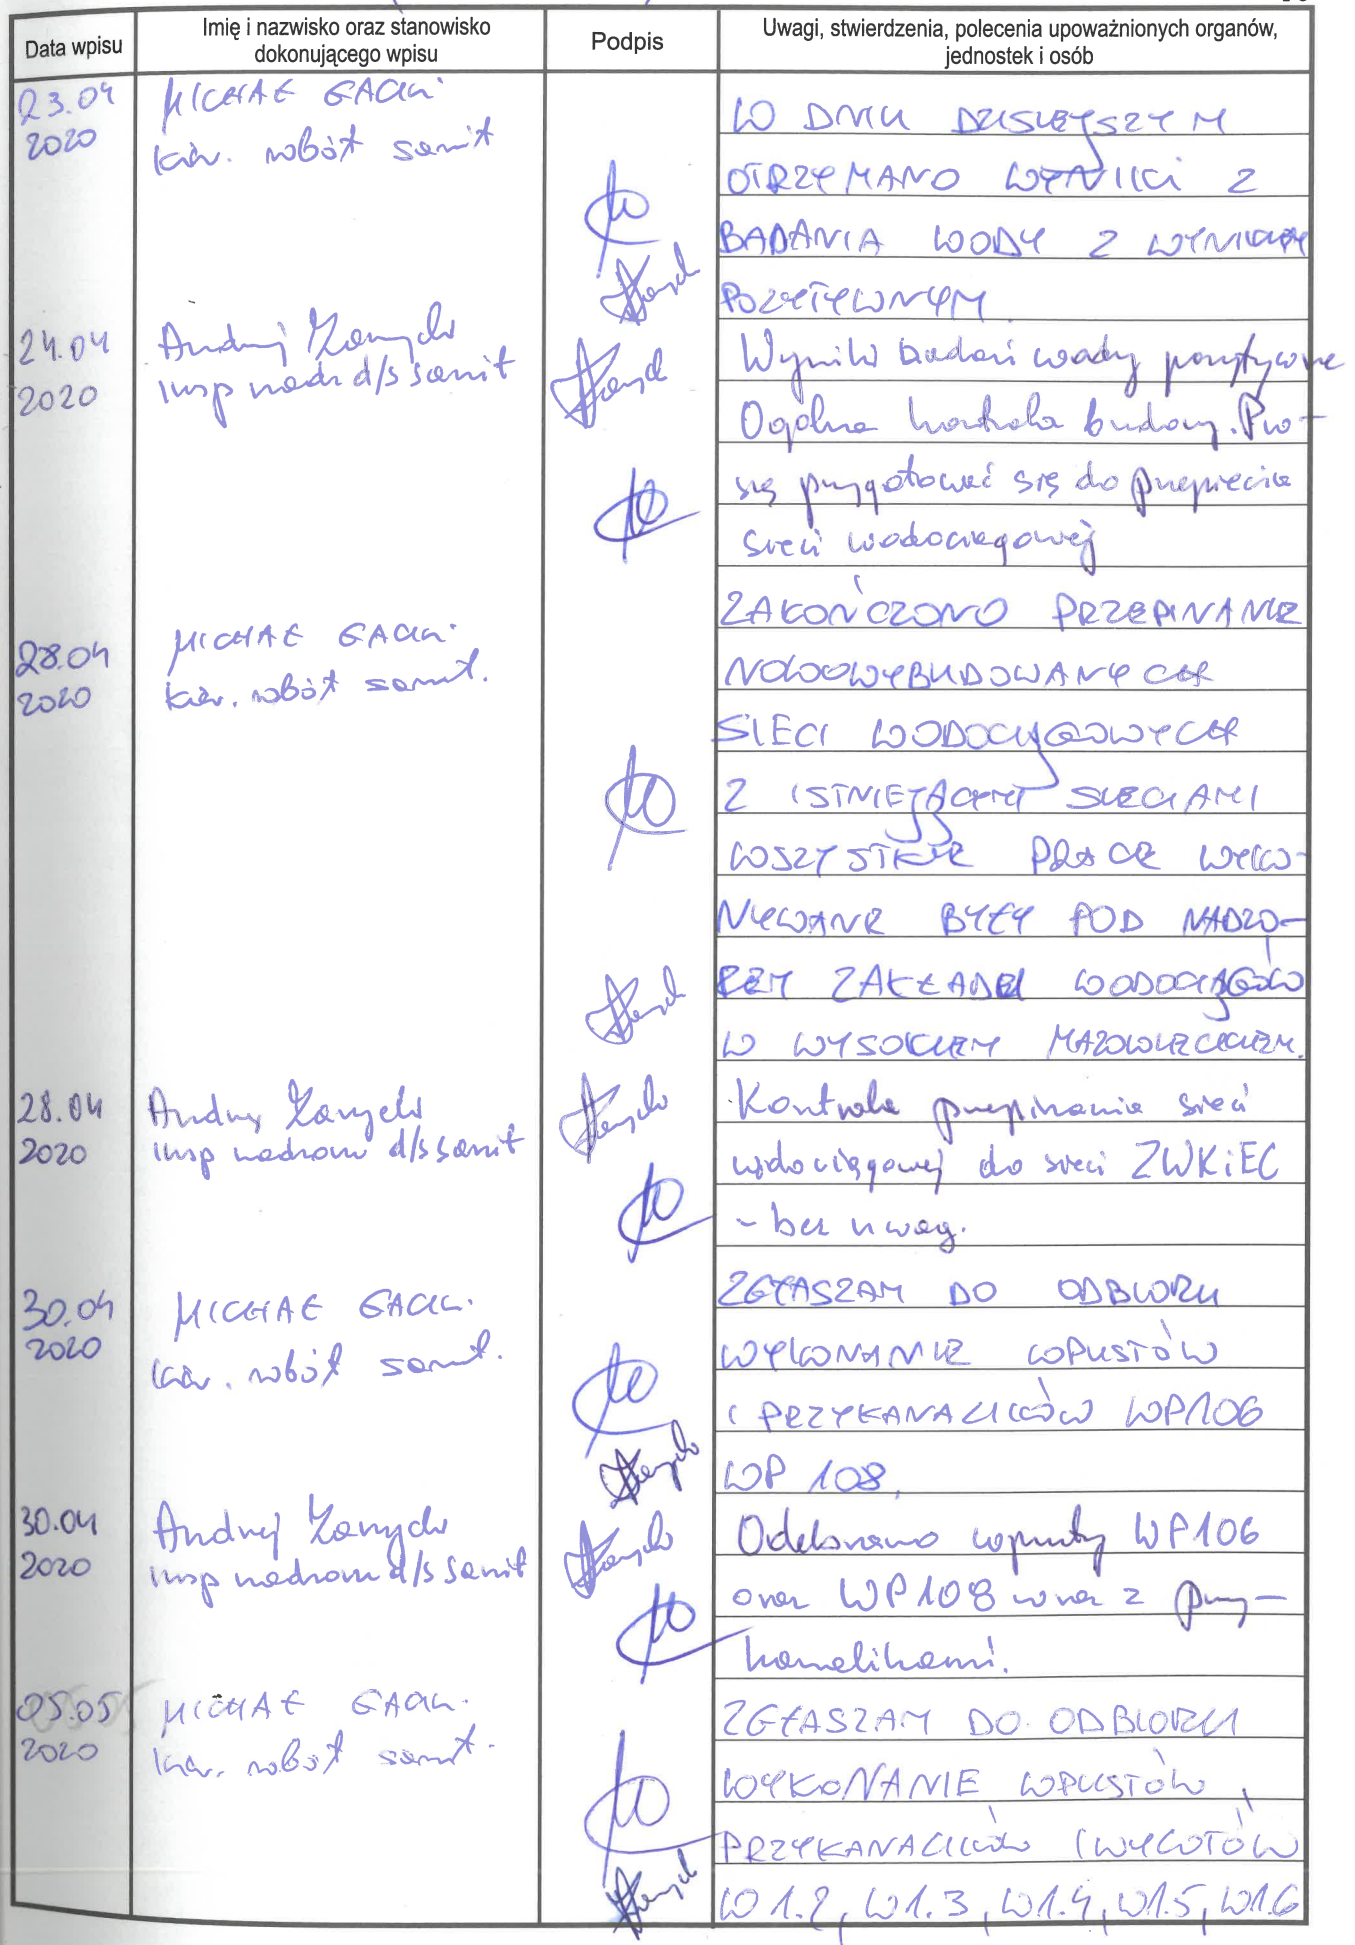 Data wpisu
Imię i nazwisko oraz stanowisko
dokonującego wpisu
Podpis
Uwagi, stwierdzenia, polecenia upoważnionych organów,
jednostek i osób
23.04
2020
MICHAŁ GACKI
kier. robót sanit
W DNIU DZISIEJSZYM
OTRZYMANO WYNIKI Z
BADANIA WODY Z WYNIKIEM
POZYTYWNYM
24.04
2020
Andrzej
insp nadr d/s sanit
Wyniki badań wody pozytywne
Ogólna kontrola budowy. Pro-
szę przygotować się do przepięcia
sieci wodociągowej
28.04
2020
MICHAŁ GACKI
kier. robót sanit.
ZAKOŃCZONO PRZEPINANIE
NOWOWYBUDOWANYCH
SIECI WODOCIĄGOWYCH
Z ISTNIEJĄCYMI SIECIAMI
WSZYSTKIE PRACE WYKO-
NYWANE BYŁY POD NADZO-
REM ZAKŁADU WODOCIĄGÓW
W WYSOKIEM MAZOWIECKIEM.
28.04
2020
Andrzej
insp nadzoru d/s sanit
Kontrola przepinania sieci
wodociągowej do sieci ZWKiEC
- bez uwag.
30.04
2020
MICHAŁ GACKI.
kier. robót sanit.
ZGŁASZAM DO ODBIORU
WYKONANIE WPUSTÓW
I PRZYKANALIKÓW WP106
WP 108,
30.04
2020
Andrzej
insp nadzoru d/s sanit
Odebrano wpusty WP106
oraz WP108 wraz z przy-
kanalikami.
05.05
2020
MICHAŁ GACKI.
kier. robót sanit.
ZGŁASZAM DO ODBIORU
WYKONANIE WPUSTÓW,
PRZYKANALIKÓW I WYLOTÓW
W1.2, W1.3, W1.4, W1.5, W1.6